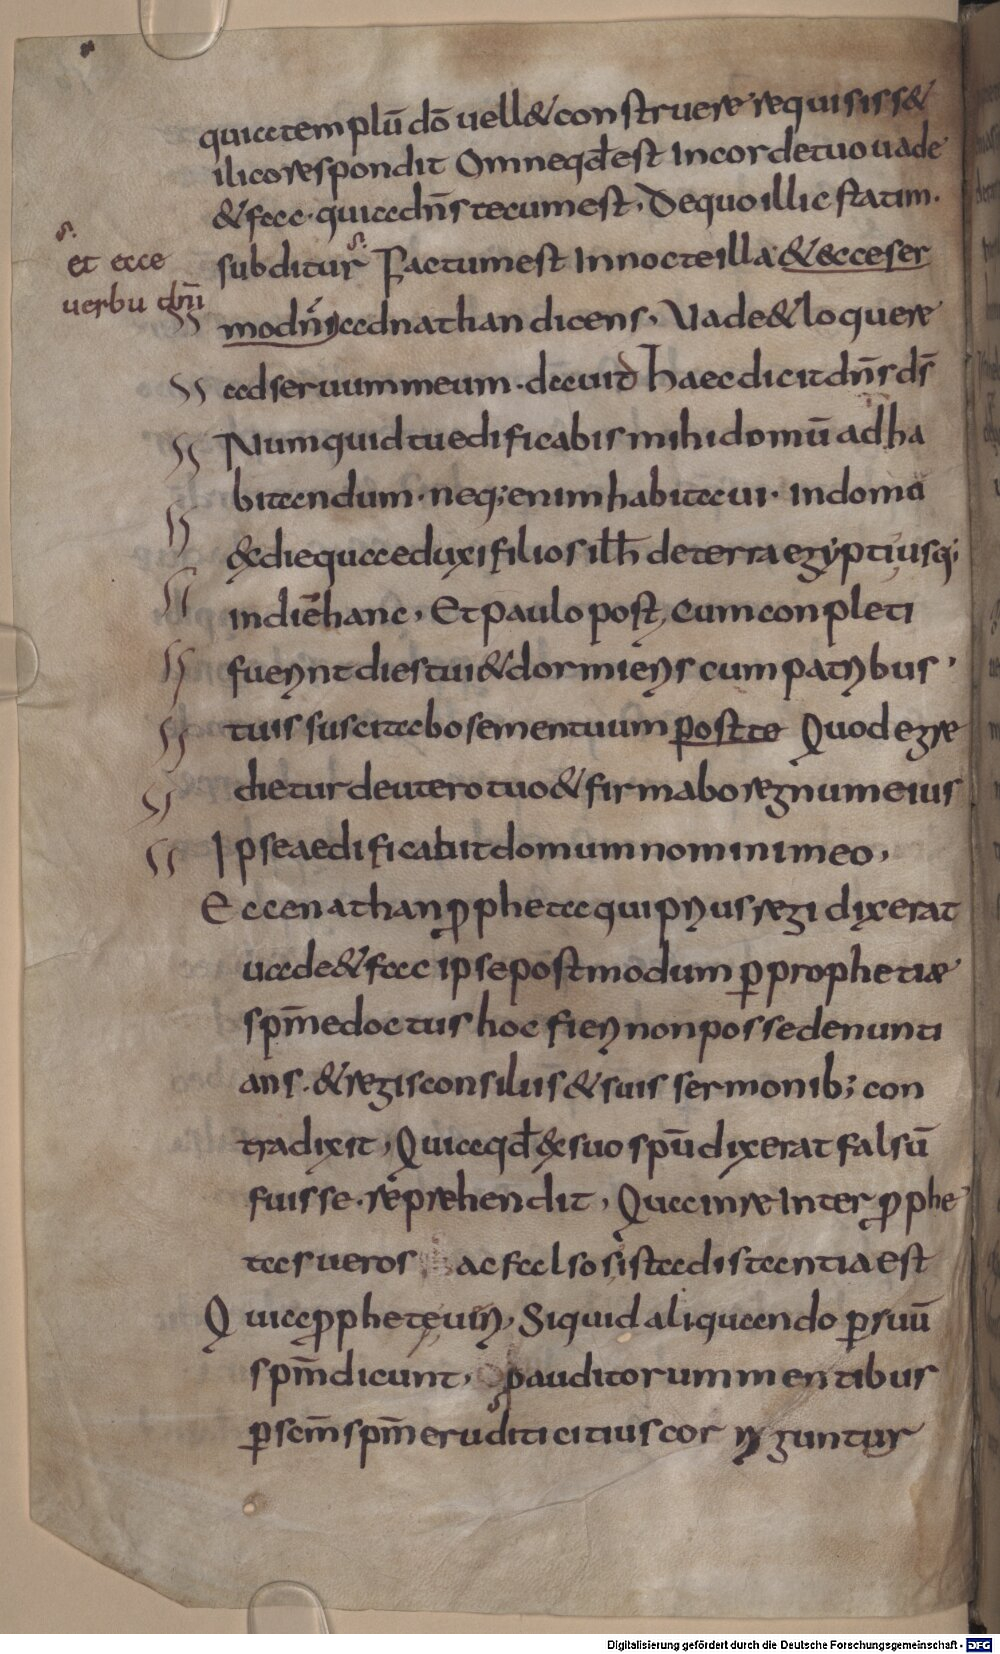 quia templū dō uell& construere requisiss&
ilico respondit Omne qđ est in corde tuo uade
& fac · quia dn̄s tecum est, De quo illic statim ·
subditur Factum est in nocte illa & ecce ser
et ecce
uerbu dn̄i
mo dn̄i ad nathan dicens, Uade & loquere
ad seruum meum · dauid haec dicit dn̄s ds̄
Numquid tu edificabis mihi domū ad ha
bitandum · neq; enim habitaui · in domu
ex die qua eduxi filios isrł de terra egypti usq;
in diē hanc, Et paulo post, Cum conpleti
fuerint dies tui & dormieris cum patribus,
tuis suscitabo semen tuum post te Quod egre
dietur de utero tuo & firmabo regnum eius
Ipse aedificabit domum nomini meo,
Ecce nathan ꝓpheta qui prius regi dixerat
uade & fac ipse postmodum ꝑ prophetiae
spm̄ edoctus hoc fieri non posse denunti
ans · & regis consiliis & suis sermonib; con
tradixit, Quia qđ ex suo spū dixerat falsū
fuisse · reprehendit, Qua in re inter ꝓphe
tas ueros ac falsos ista distantia est
Quia ꝓphete ueri, Si quid aliquando ꝑ suū
spm̄ dicunt, auditorum mentibus
ꝑ scm̄ spm̄ eruditi citius cor riguntur
Digitalisierung gefördert durch die Deutsche Forschungsgemeinschaft - DFG